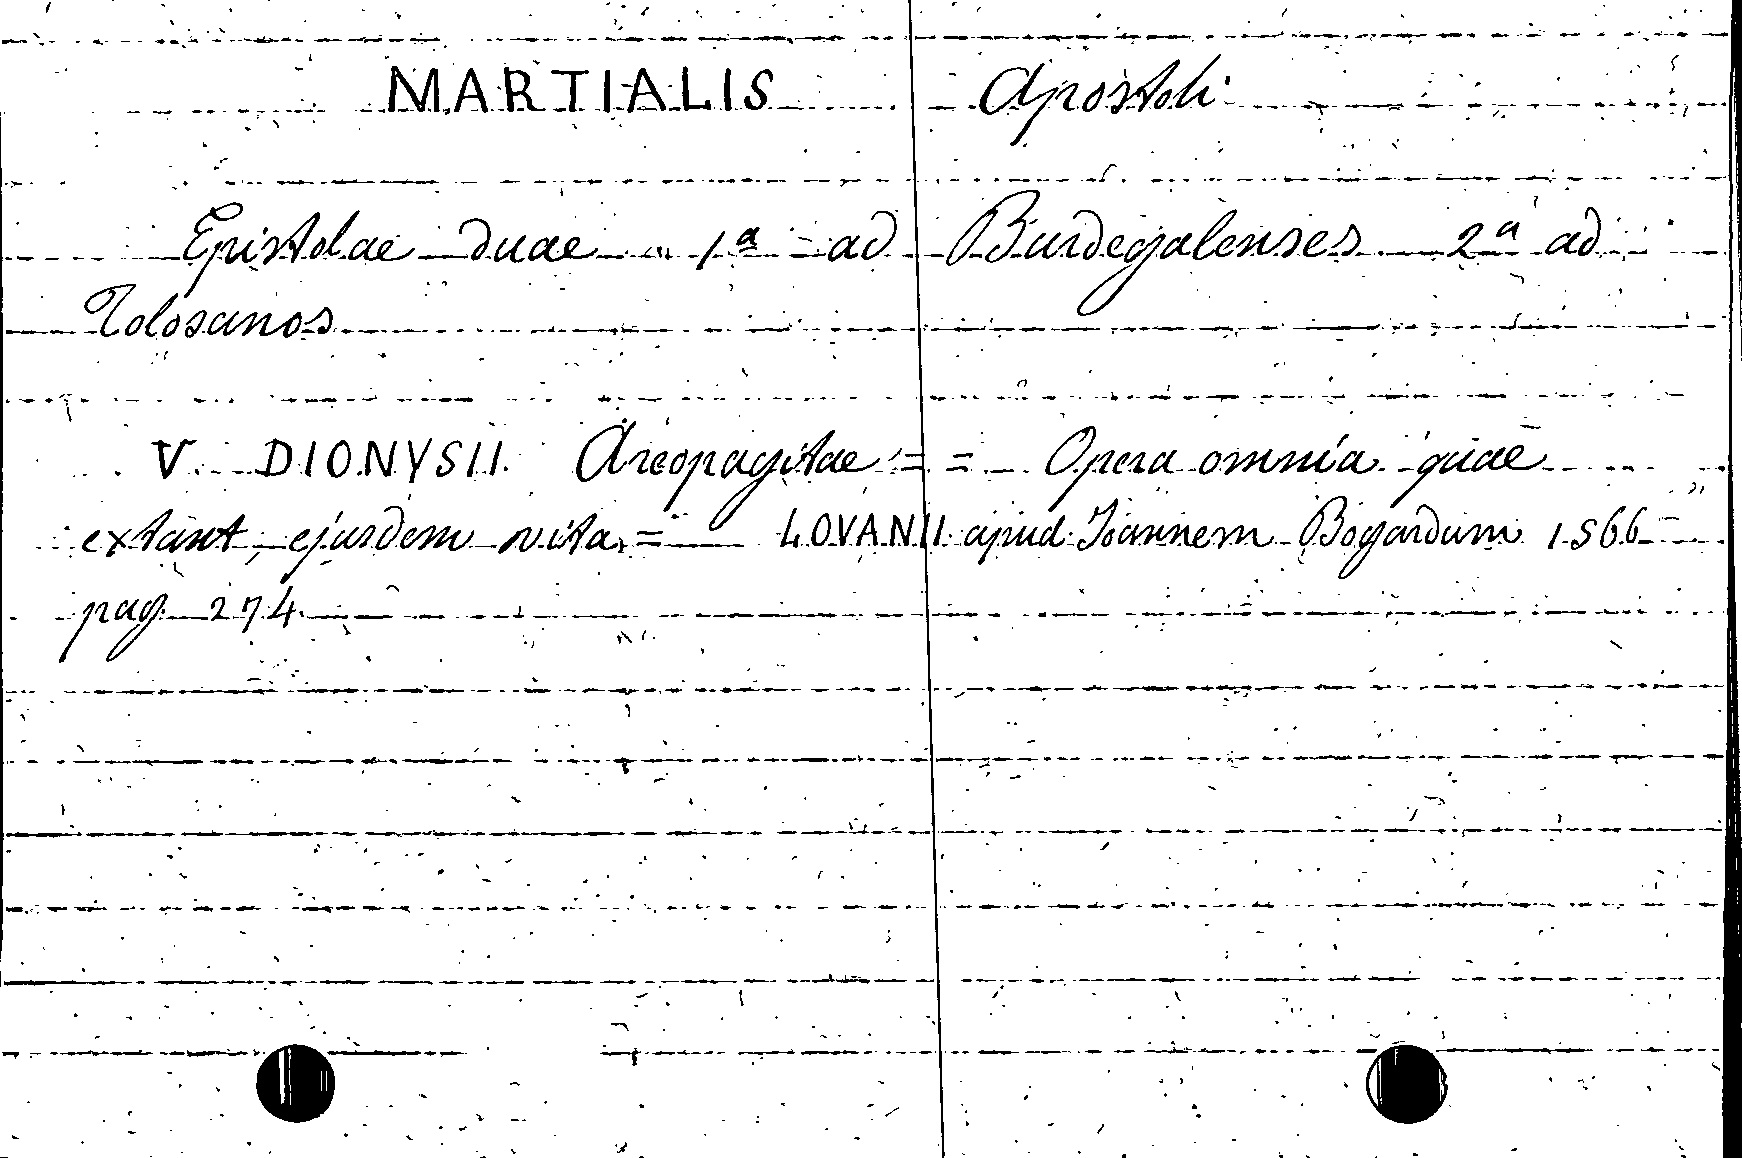 MARTIALIS Apostoli
Epistolae duae 1ª ad Burdegalenses 2ª ad
Tolosanos
V. DIONYSII Areopagitae = = Opera omnia quae
extant, ejusdem vita = LOVANII apud Ioannem Bogardum 1566 =
pag 274